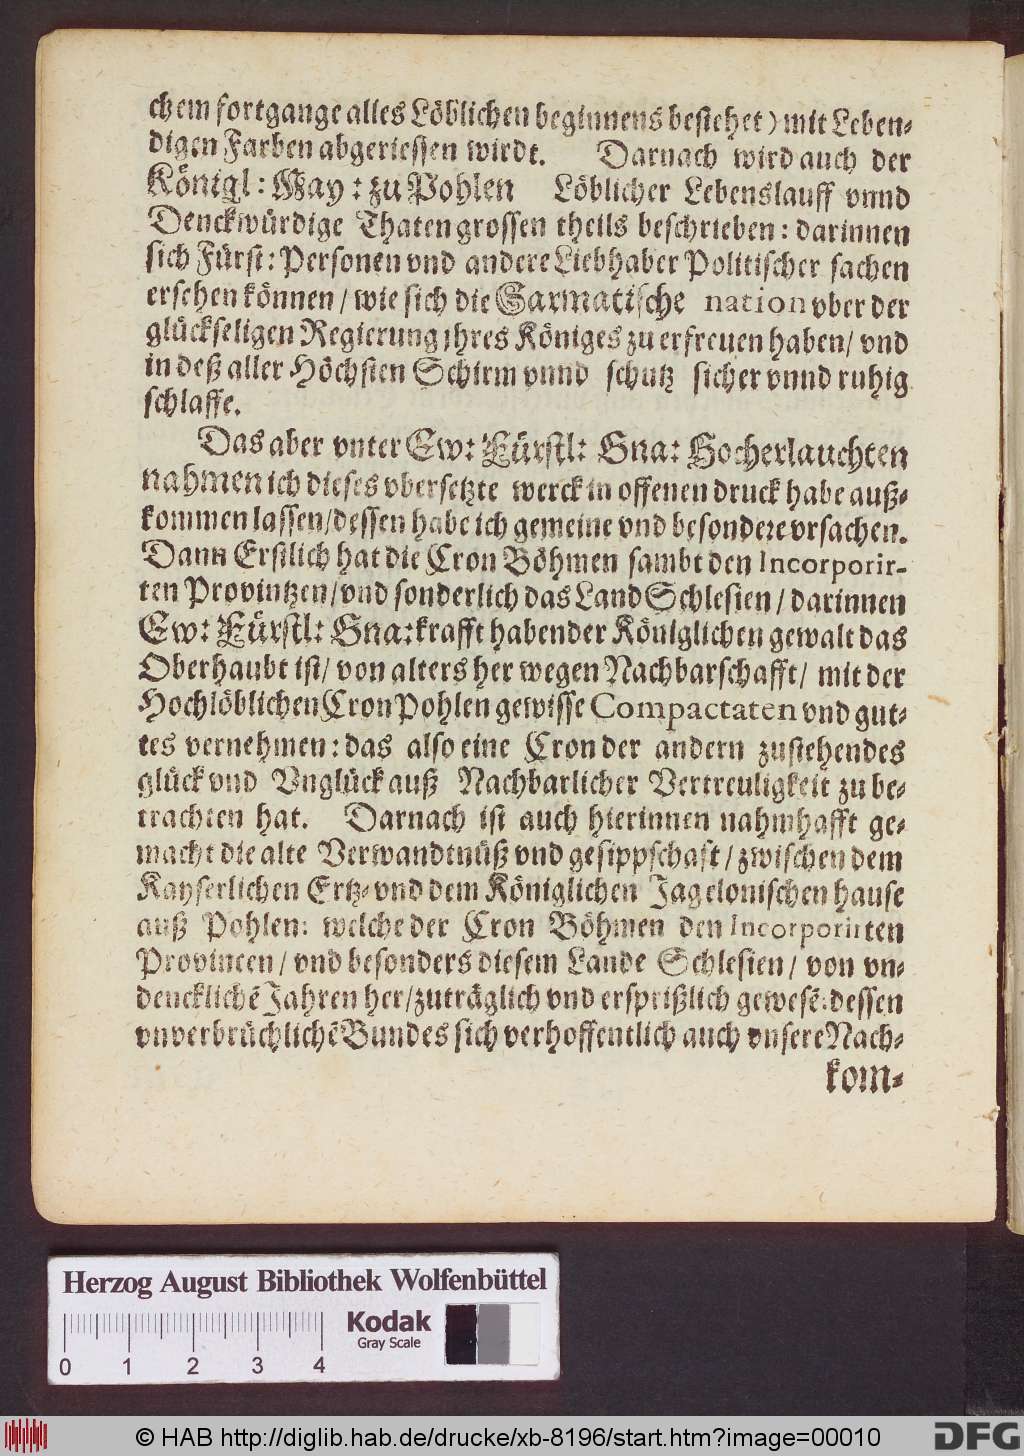 chem fortgange alles Löblichen beginnens bestehet) mit Leben-
digen Farben abgeriessen wirdt. Darnach wird auch der
Königl: May: zu Pohlen Löblicher Lebenslauff vnnd
Denckwürdige Thaten grossen theils beschrieben: darinnen
sich Fürst: Personen vnd andere Liebhaber Politischer sachen
ersehen können / wie sich die Sarmatische nation vber der
glückseligen Regierung jhres Königes zu erfreuen haben / vnd
in deß aller Höchsten Schirm vnnd schutz sicher vnnd ruhig
schlaffe.
Das aber vnter Ew: Fürstl: Gna: Hocherlauchten
nahmen ich dieses vbersetzte werck in offenen druck habe auß-
kommen lassen / dessen habe ich gemeine vnd besondere vrsachen.
Dann Erstlich hat die Cron Böhmen sambt den Incorporir-
ten Provintzen / vnd sonderlich das Land Schlesien / darinnen
Ew: Fürstl: Gna: krafft habender Königlichen gewalt das
Oberhaubt ist / von alters her wegen Nachbarschafft / mit der
Hochlöblichen Cron Pohlen gewisse Compactaten vnd gut-
tes vernehmen: das also eine Cron der andern zustehendes
glück vnd Vnglück auß Nachbarlicher Vertreuligkeit zu be-
trachten hat. Darnach ist auch hierinnen nahmhafft ge-
macht die alte Verwandtnüß vnd gesippschaft / zwischen dem
Kayserlichen Ertz- vnd dem Königlichen Jagelonischen hause
auß Pohlen: welche der Cron Böhmen den Incorporirten
Provincen / vnd besonders diesem Lande Schlesien / von vn-
dencklichē Jahren her / zuträglich vnd ersprißlich gewesē: dessen
vnverbrüchlichē Bundes sich verhoffentlich auch vnsere Nach-
kom-
Herzog August Bibliothek Wolfenbüttel
Kodak
Gray Scale
0 1 2 3 4
© HAB http://diglib.hab.de/drucke/xb-8196/start.htm?image=00010
DFG